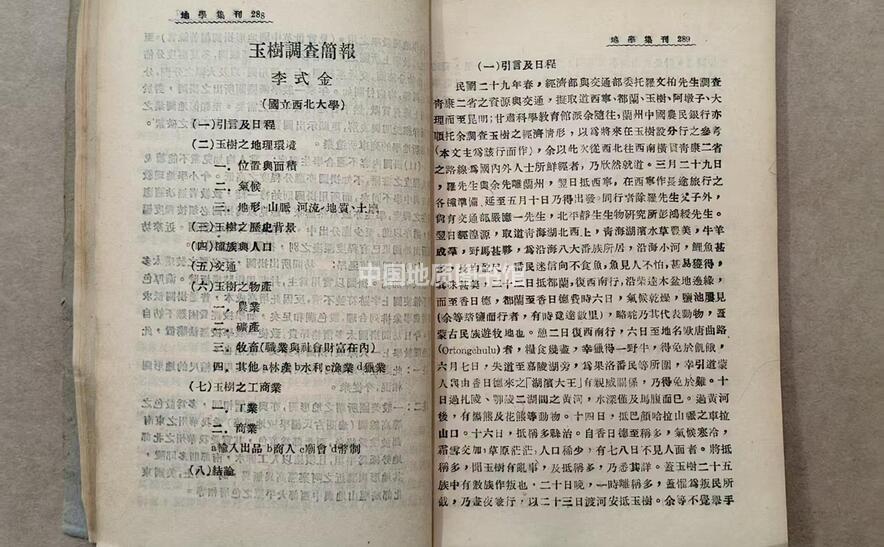 地學集刊 288
玉樹調查簡報
李式金
(國立西北大學)
(一)引言及日程
(二)玉樹之地理環境
一．位置與面積
二．氣候
三．地形 山脈 河流 地質、土壤
(三)玉樹之歷史背景
(四)種族與人口
(五)交通
(六)玉樹之物產
一．農業
二．礦產
三．牧畜(職業與社會財富在內)
四．其他 a林產 b水利 c漁業 d獵業
(七)玉樹之工商業
一．工業
二．商業
a輸入出品 b商人 c廟會 d幣制
(八)結論
地學集刊 289
(一)引言及日程
民國二十九年春，經濟部與交通部委托羅文柏先生調查
青康二省之資源與交通，擬取道西寧、都蘭、玉樹、阿墩子、大
理而至昆明；甘肅科學教育館派余隨往，蘭州中國農民銀行亦
順托余調查玉樹之經濟情形，以為將來在玉樹設分行之參考
(本文主為該行而作)，余以此次從西北往西南橫貫青康二省
之路線為國內外人士所鮮經者，乃欣然就道。三月二十九日
，羅先生與余先離蘭州，翌日抵西寧，在西寧作長途旅行之
各種準備，延至五月十日乃得出發。同行者除羅先生父子外，
尚有交通部嚴德一先生，北平靜生生物研究所彭鴻綬先生。
翌日經湟源，取道青海湖北西上，青海湖濱水草豐美，牛羊
成羣，野馬甚夥，為沿海八大番族所居，沿海小河，鯉魚甚
番民迷信向不食魚，魚見人不怕，甚易獲得，
其味甚美，抵都蘭，復西南行，沿柴達木盆地邊緣
而至香日德，都蘭至香日德費時六日，氣候乾燥，鹽地屢見
(余等踏鹽而行者，有時竟達數里)，駱駝乃其代表動物，蓋
蒙古民族遊牧地也。憩二日復西南行，六日至地名歌唐曲路
(Ortongchulu)者，糧食幾盡，幸獵得一野牛，得免於飢餓，
六月七日，失道至嘉陵湖旁，為果洛番民等所困，幸引道蒙
人與由香日德來之「湖濱大王」有親戚關係，乃得免於難。十
日過扎陵、鄂陵二湖間之黃河，水深僅及馬腹而已。過黃河
後，有熊及花熊等動物。十四日，抵巴顏哈拉山脈之車拉
山口。十六日，抵稱多縣治。自香日德至稱多，氣候寒冷，
霜雪交加，草原茫茫，人口稀少，有七八日不見人面者。將抵
稱多，聞玉樹有亂事，及抵稱多，乃悉其詳。蓋玉樹二十五
族中有數族作叛也．二十日晚，一時離稱多，蓋懼為叛民所
截，乃晝夜發行，以二十三日渡河安抵玉樹。余等不覺舉手
中国地质图书馆